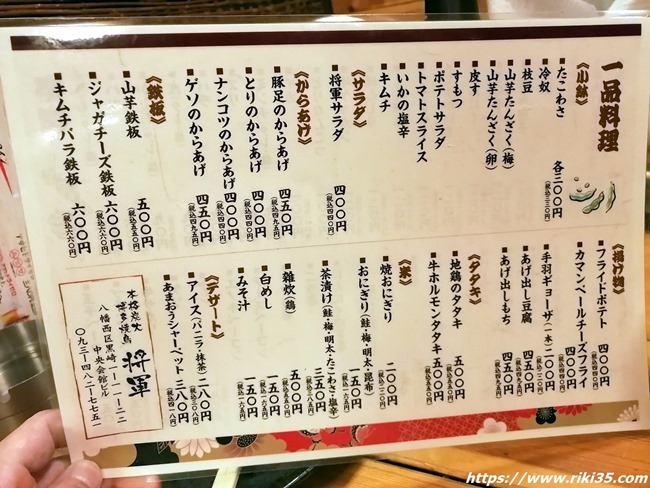 一品料理
《小鉢》
各三〇〇円
(税込三三〇円)
■たこわさ
■冷奴
■枝豆
■山芋たんざく(梅)
■山芋たんざく(卵)
■皮す
■すもつ
■ポテトサラダ
■トマトスライス
■いかの塩辛
■キムチ
《サラダ》
■将軍サラダ 四〇〇円
(税込四四〇円)
《からあげ》
■豚足のからあげ 四五〇円
(税込四九五円)
■とりのからあげ 四〇〇円
(税込四四〇円)
■ナンコツのからあげ 四〇〇円
(税込四四〇円)
■ゲソのからあげ 四五〇円
(税込四九五円)
《鉄板》
■山芋鉄板 五〇〇円
(税込五五〇円)
■ジャガチーズ鉄板 六〇〇円
(税込六六〇円)
■キムチバラ鉄板 六〇〇円
(税込六六〇円)
《揚げ物》
■フライドポテト 四〇〇円
(税込四四〇円)
■カマンベールチーズフライ 四〇〇円
(税込四四〇円)
■手羽ギョーザ(一本) 二〇〇円
(税込二二〇円)
■あげ出し豆腐 四五〇円
(税込四九五円)
■あげ出しもち 四五〇円
(税込四九五円)
《タタキ》
■地鶏のタタキ 五〇〇円
(税込五五〇円)
■牛ホルモンタタキ 五〇〇円
(税込五五〇円)
《米》
■焼おにぎり 二〇〇円
(税込二二〇円)
■おにぎり(鮭・梅・明太・昆布) 一五〇円
(税込一六五円)
■茶漬け(鮭・梅・明太・たこわさ・塩辛) 三五〇円
(税込三八五円)
■雑炊(鶏) 五〇〇円
(税込五五〇円)
■白めし 一五〇円
(税込一六五円)
■みそ汁 一五〇円
(税込一六五円)
《デザート》
■アイス(バニラ・抹茶) 二八〇円
(税込三〇八円)
■あまおうシャーベット 三八〇円
(税込四一八円)
本格炭火
博多焼鳥
将軍
八幡西区黒崎一-一-二二
中央会館ビル
〇九三-四八二-七七五一
https://www.riki35.com